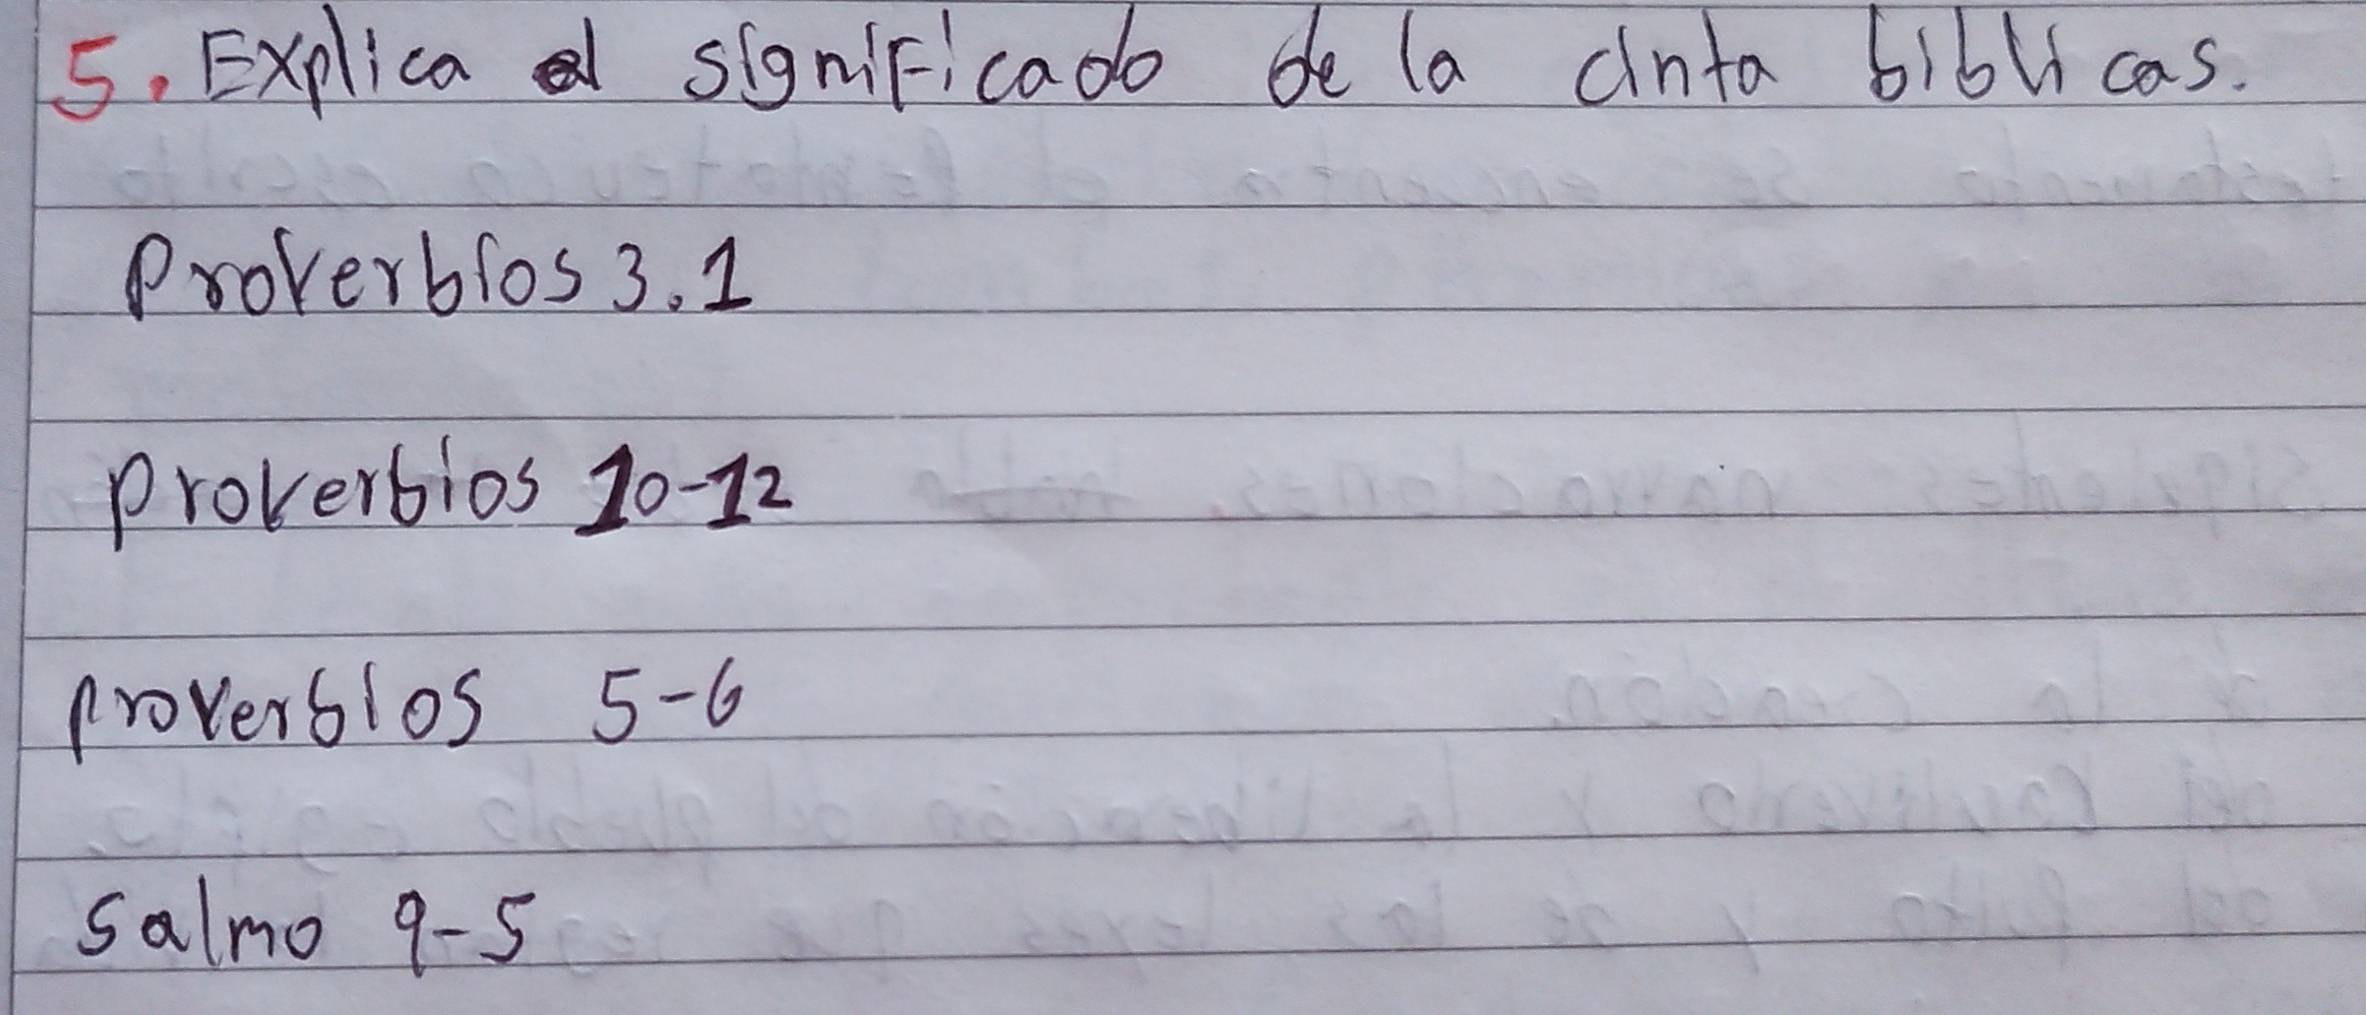 5. Explica el significado de la cinta biblicas.
Proverbios 3.1
proverbios 10-12
proverbios 5-6
Salmo 9-5